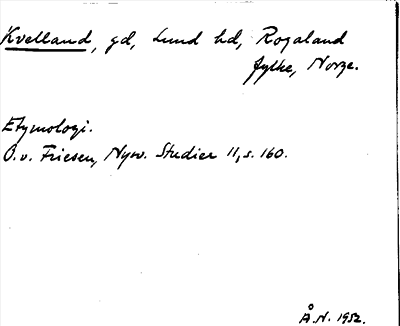 Kvelland, gd, Lund hd, Rogaland
fylke, Norge.
Etymologi.
O.v. Friesen, Nysv. Studier 11, s. 160.
Å.N. 1952.